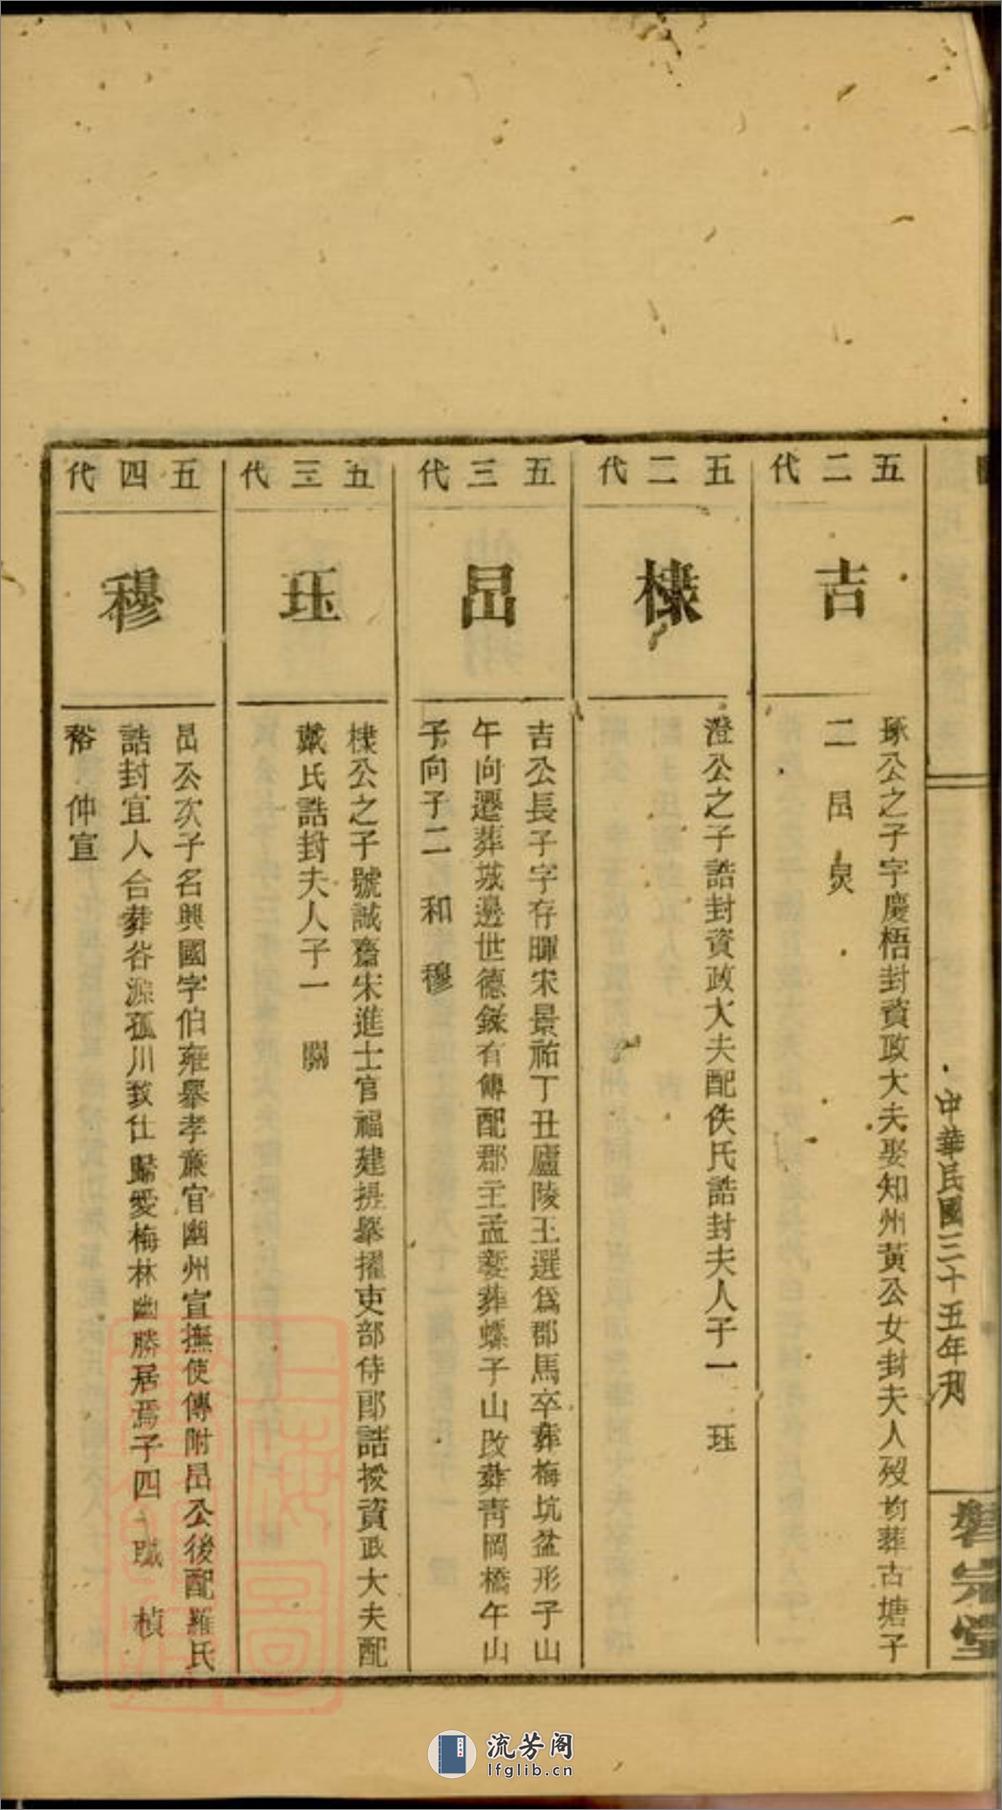 中華民國三十五年刊
五二代
吉
琢公之子字慶梧封資政大夫娶知州黃公女封夫人歿均葬古塘子
二 昂 炅
五二代
棣
澄公之子誥封資政大夫配佚氏誥封夫人子一 珏
五三代
昂
吉公長子字存暉宋景祐丁丑廬陵王選爲郡馬卒葬梅坑盆形子山
午向遷葬城邊世德錄有傳配郡主孟娶葬螺子山改葬靑岡橋午山
子向子二 和 穆
五三代
珏
棣公之子號誠齋宋進士官福建提舉擢吏部侍郎誥授資政大夫配
戴氏誥封夫人子一 關
五四代
穆
昂公次子名興國字伯雍舉孝廉官幽州宣撫使傳附昂公後配羅氏
誥封宜人合葬谷源孤川致仕歸愛梅林幽勝居焉子四 晠 楨
裕 仲宣
流芳阁
lfglib.cn